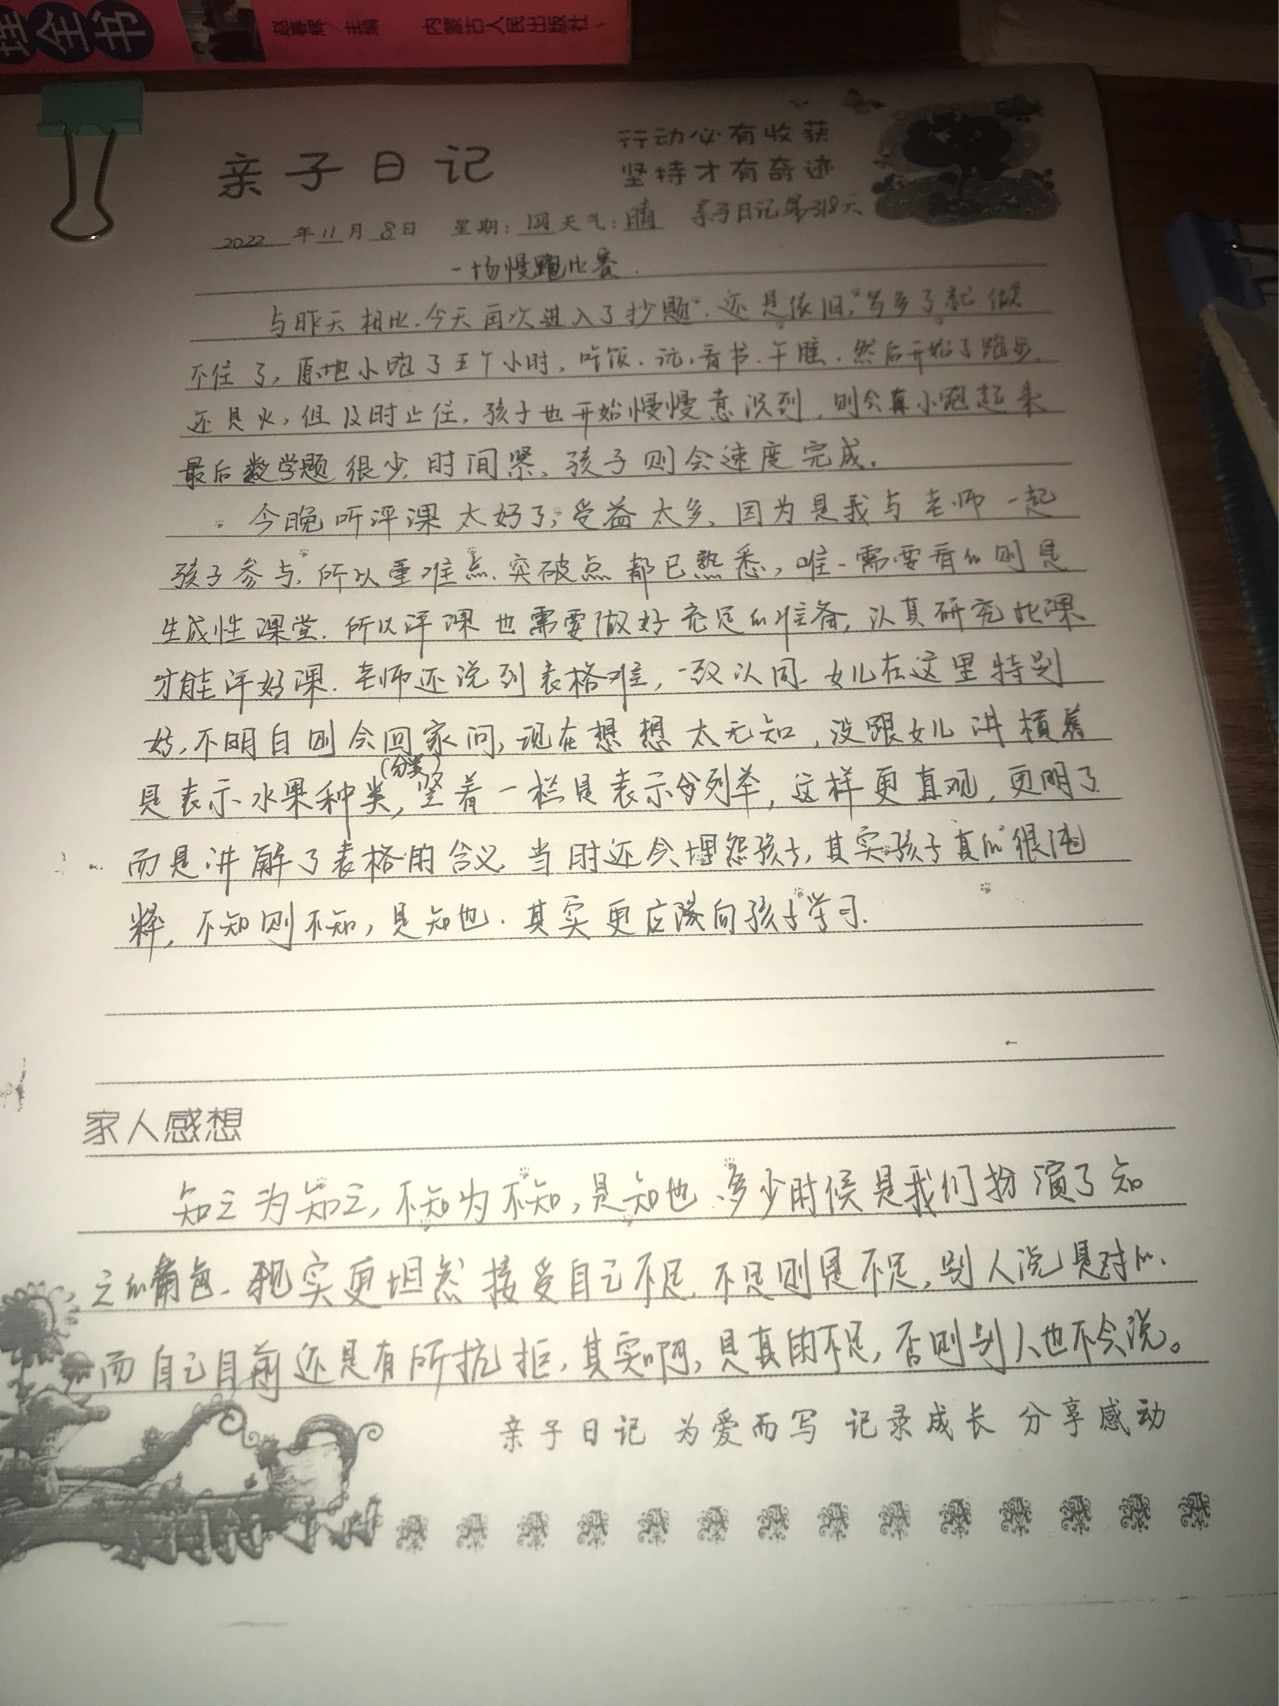 理全书
赵春辉/主编 内蒙古人民出版社
亲子日记
行动必有收获
坚持才有奇迹
2022年11月8日 星期:四 天气:晴 亲子日记第318天
一场慢跑比赛.
与昨天相比.今天再次进入了抄题.还是依旧,写多了就做
不住了,原地小跑了五个小时,吃饭、玩,看书、午睡.然后开始了跑步.
还是火,但及时止住,孩子也开始慢慢意识到,则会真小跑起来
最后数学题很少,时间紧,孩子则会速度完成.
今晚听评课太好了,受益太多,因为是我与老师一起
孩子参与,所以重难点、突破点都已熟悉,唯一需要看的则是
生成性课堂.所以评课也需要做好充足的准备,认真研究此课
才能评好课.老师还说到表格难,一致认同.女儿在这里特别
好,不明白则会回家问,现在想想太无知,没跟女儿讲横着
(分类)
是表示水果种类,竖着一栏是表示分列举,这样更直观,更明了
而是讲解了表格的含义.当时还会埋怨孩子,其实孩子真的很纯
粹,不知则不知,是知也.其实更应该向孩子学习.
家人感想
知之为知之,不知为不知,是知也.多少时候是我们扮演了知
之的角色.现实更坦然接受自己不足.不足则是不足,别人说是对的.
而自己目前还是有所抗拒,其实啊,是真的不足,否则别人也不会说。
亲子日记 为爱而写 记录成长 分享感动